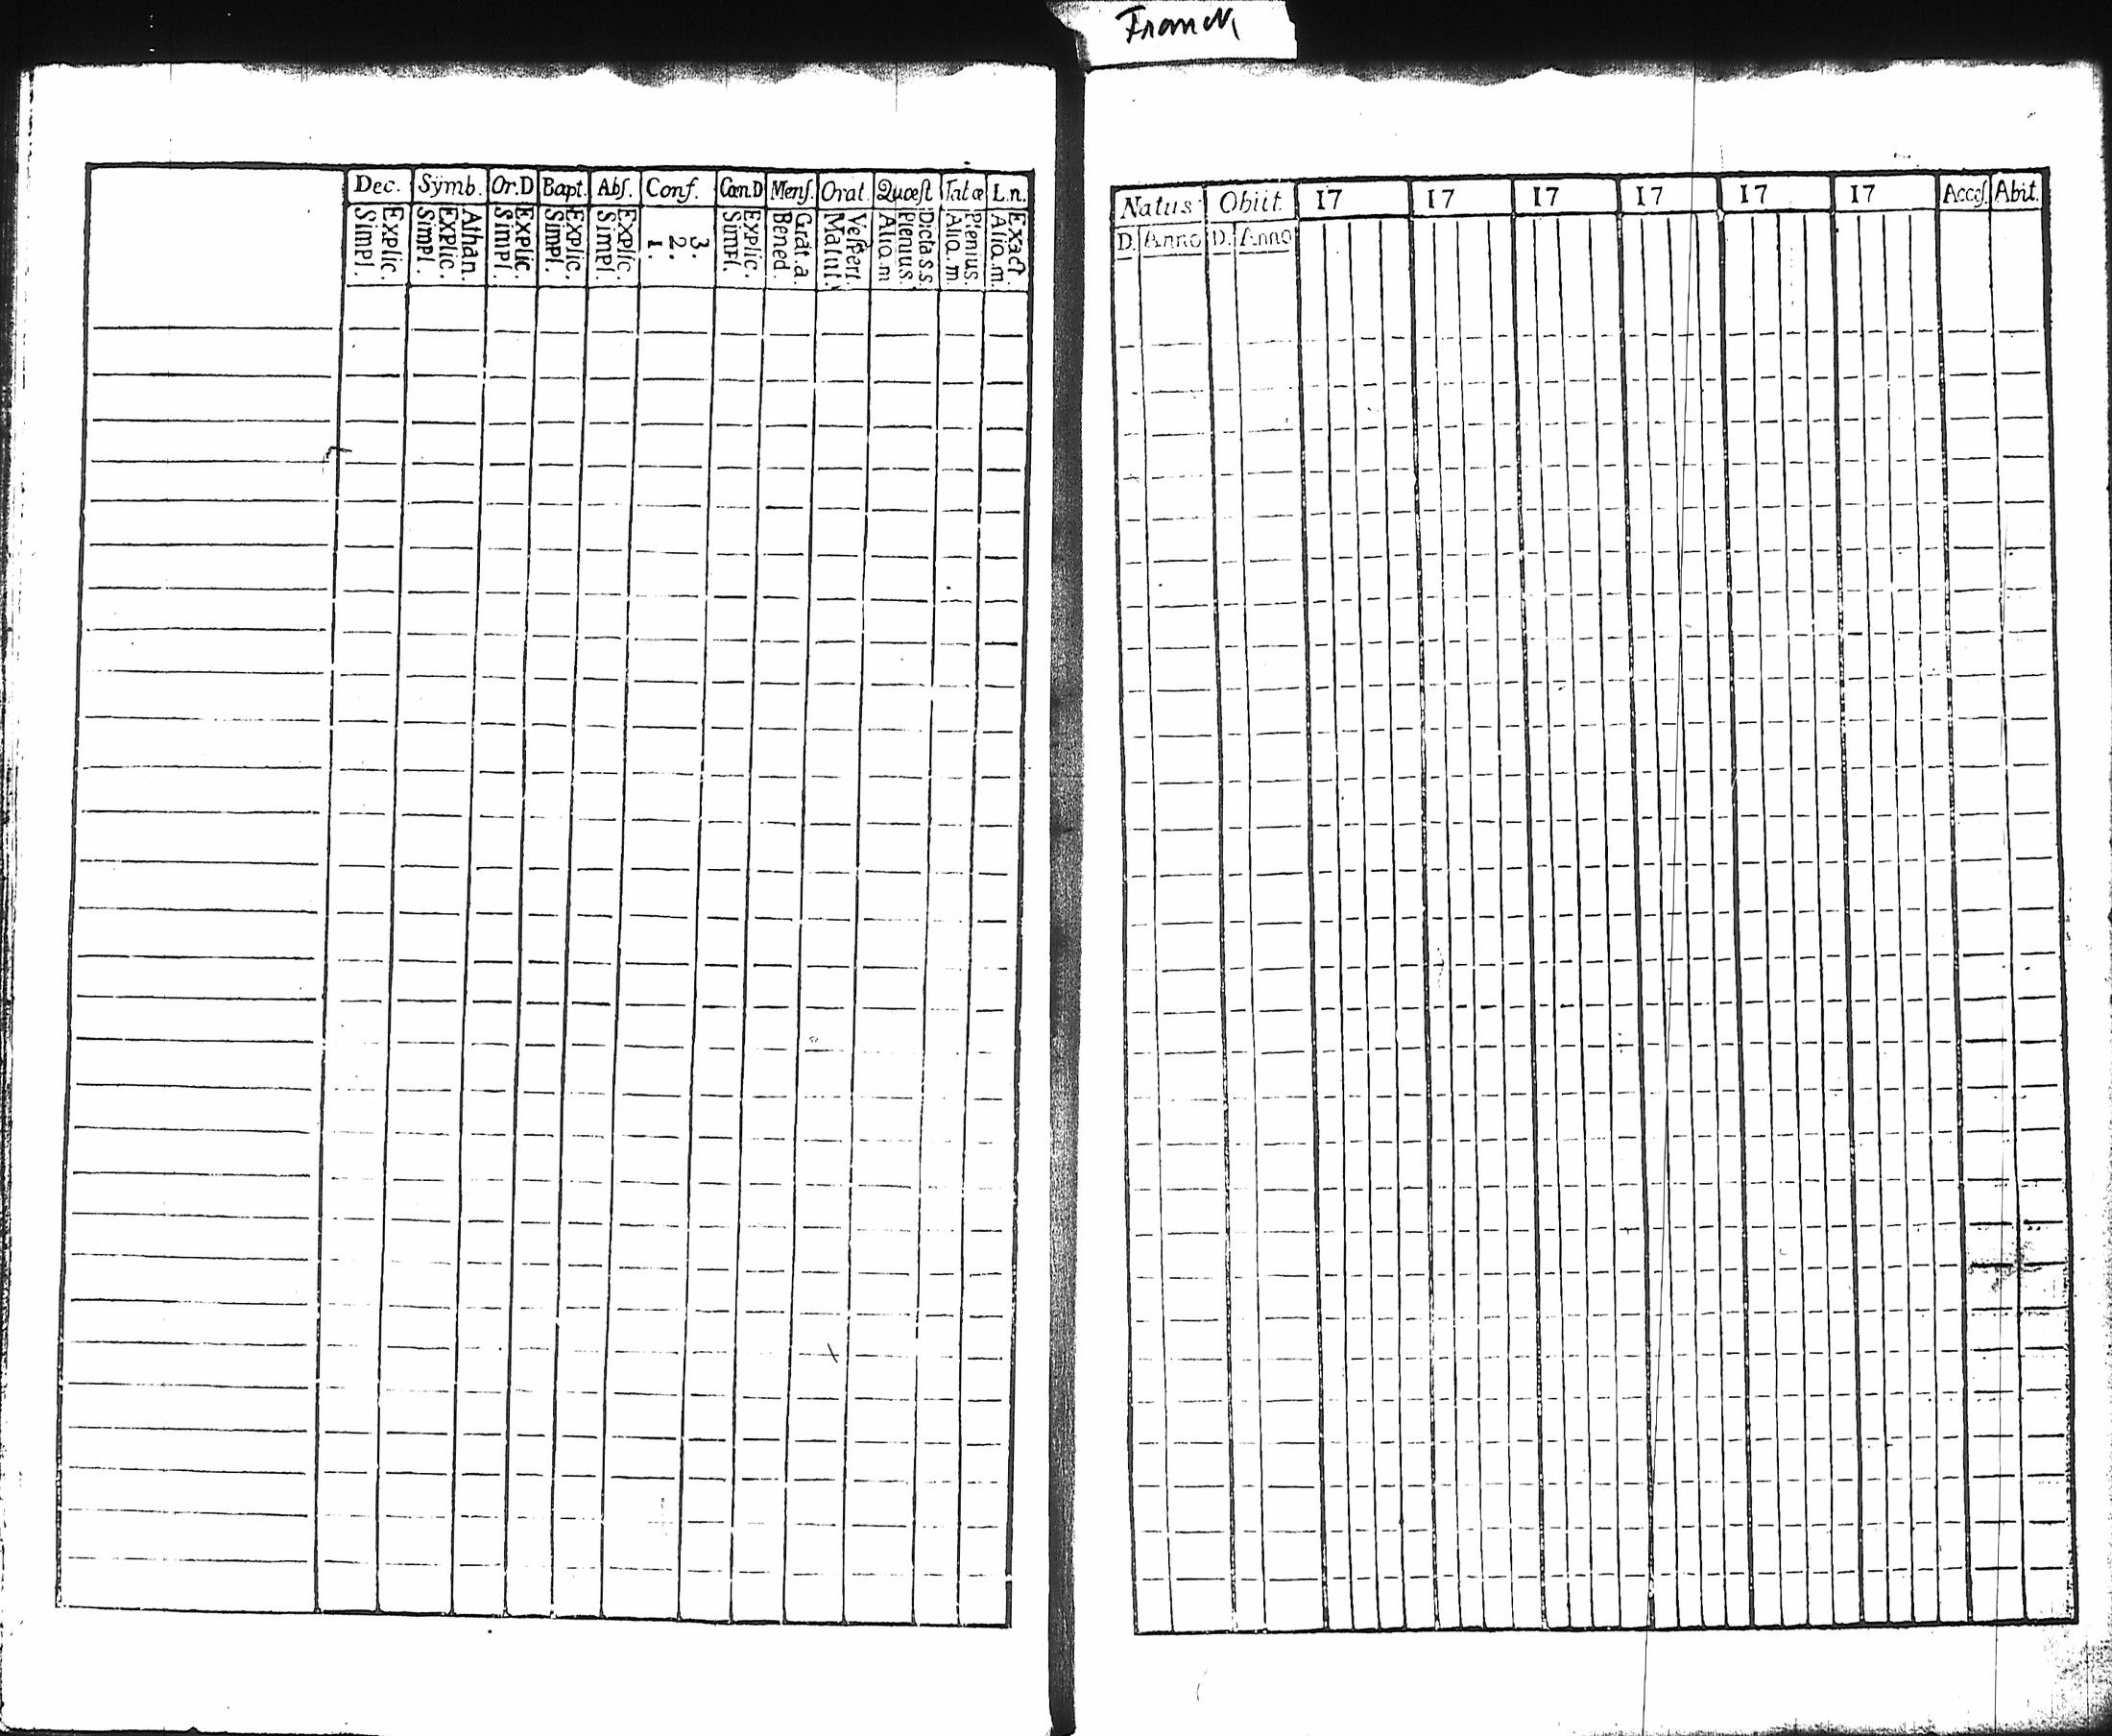 Dec. Sÿmb. Or.D Bapt. Abſ. Conf. Cœn.D Menſ. Orat. Quæſt Tabæ L.n.
Explic. Simpl. Athan. Explic. Simpl. Explic. Simpl. Explic. Simpl. Explic. Simpl. 3. 2. 1. Explic. Simpl. Grat.a. Bened. Veſpert. Matut. Dicta s.s. Plenius. Aliq.m Plenius. Aliq.m. Exact. Aliq.m.
Natus Obiit 17 17 17 17 17 17 Acceſ. Abit.
D. Anno D. Anno